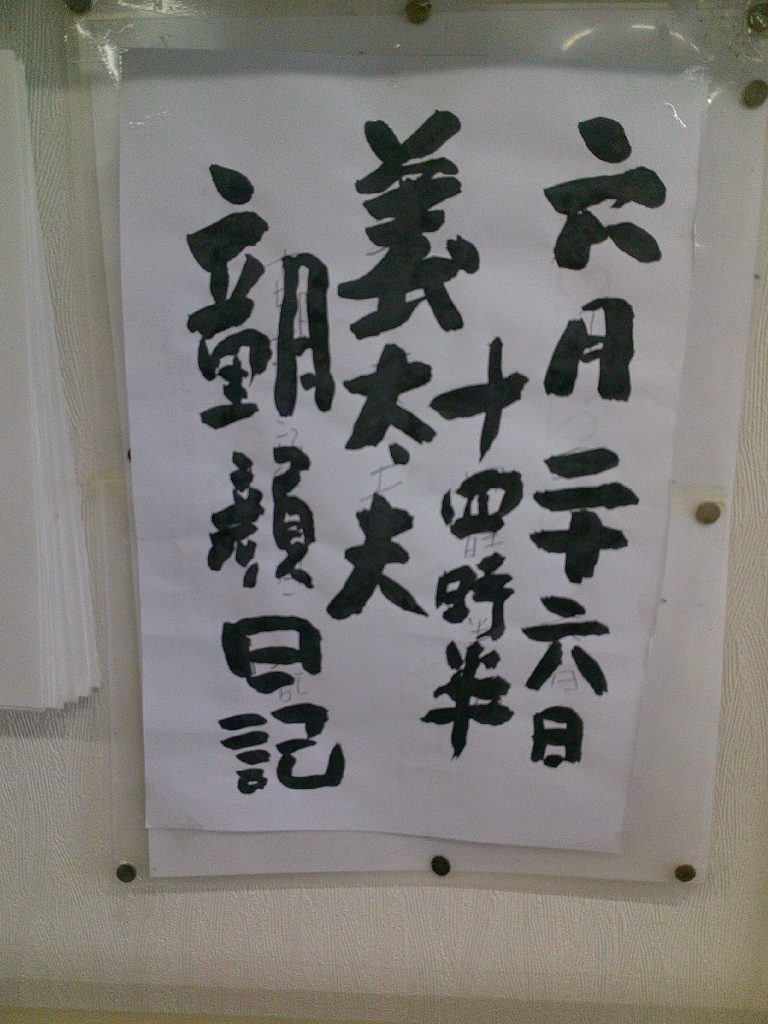 六月二十六日
十四時半
義太夫
朝顔日記